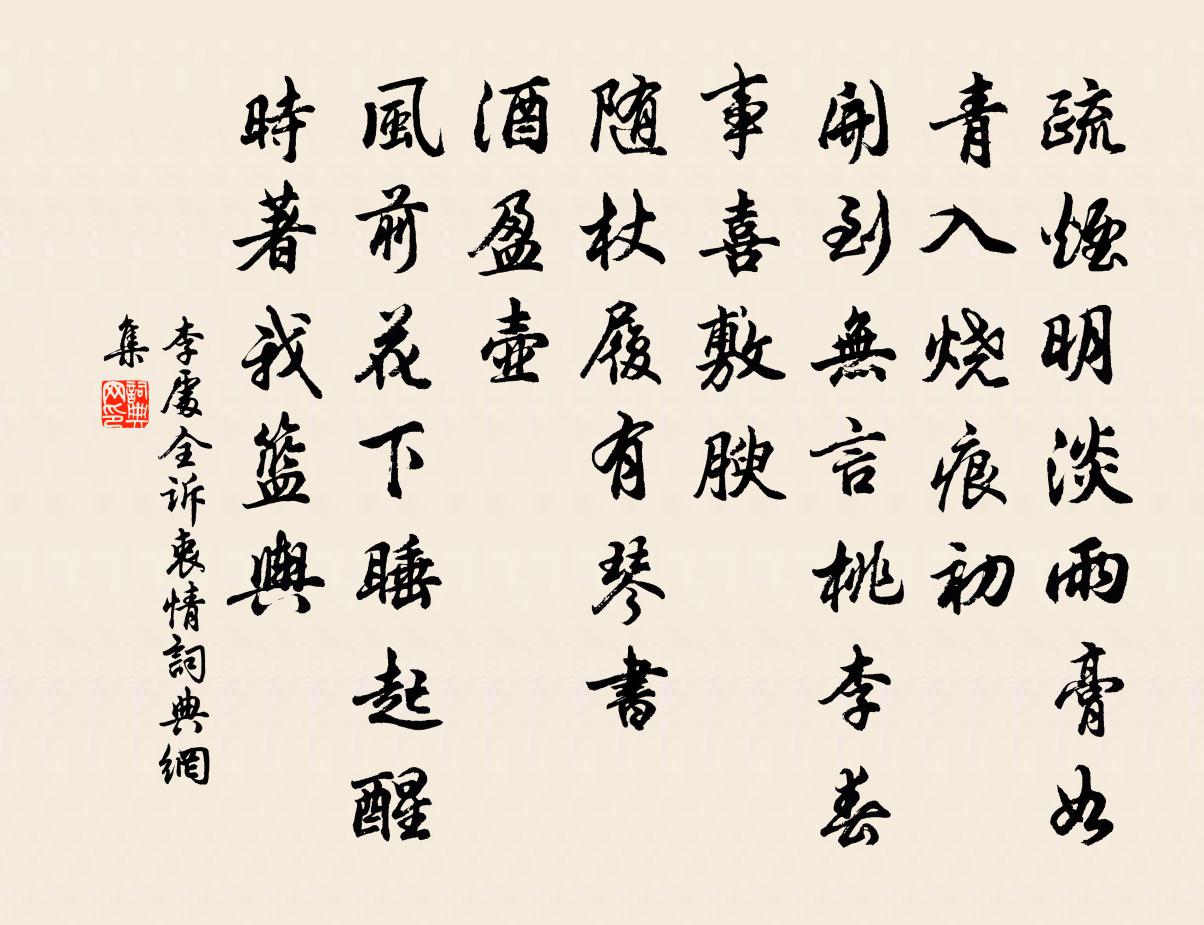 疏煙明淡雨膏如
青入烧痕初
開到無言桃李春
事喜敷腴
随杖履有琴書
酒盈壺
風前花下睡起醒
時著我籃輿
李處全訴衷情詞典網
集
詞典
网印